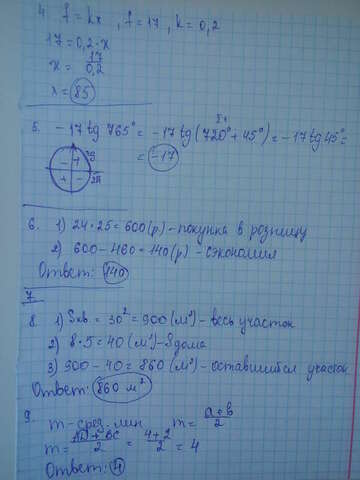 4. f = kx, f = 17, k = 0,2
17 = 0,2 · x
x = 17/0,2
x = 85
5. -17 tg 765° = -17 tg (720° + 45°) = -17 tg 45° =
= -17
6. 1) 24 · 25 = 600 (р) - покупка в розницу
2) 600 - 460 = 140 (р) - сэкономил
Ответ: 140
7
8. 1) Sкв. = 30² = 900 (м²) - весь участок
2) 8 · 5 = 40 (м²) - Sдома
3) 900 - 40 = 860 (м²) - оставшийся участок
Ответ: 860 м²
9. m - сред. лин. m = a+b/2
m = + BC/2 = 4+2/2 = 4
Ответ: 4